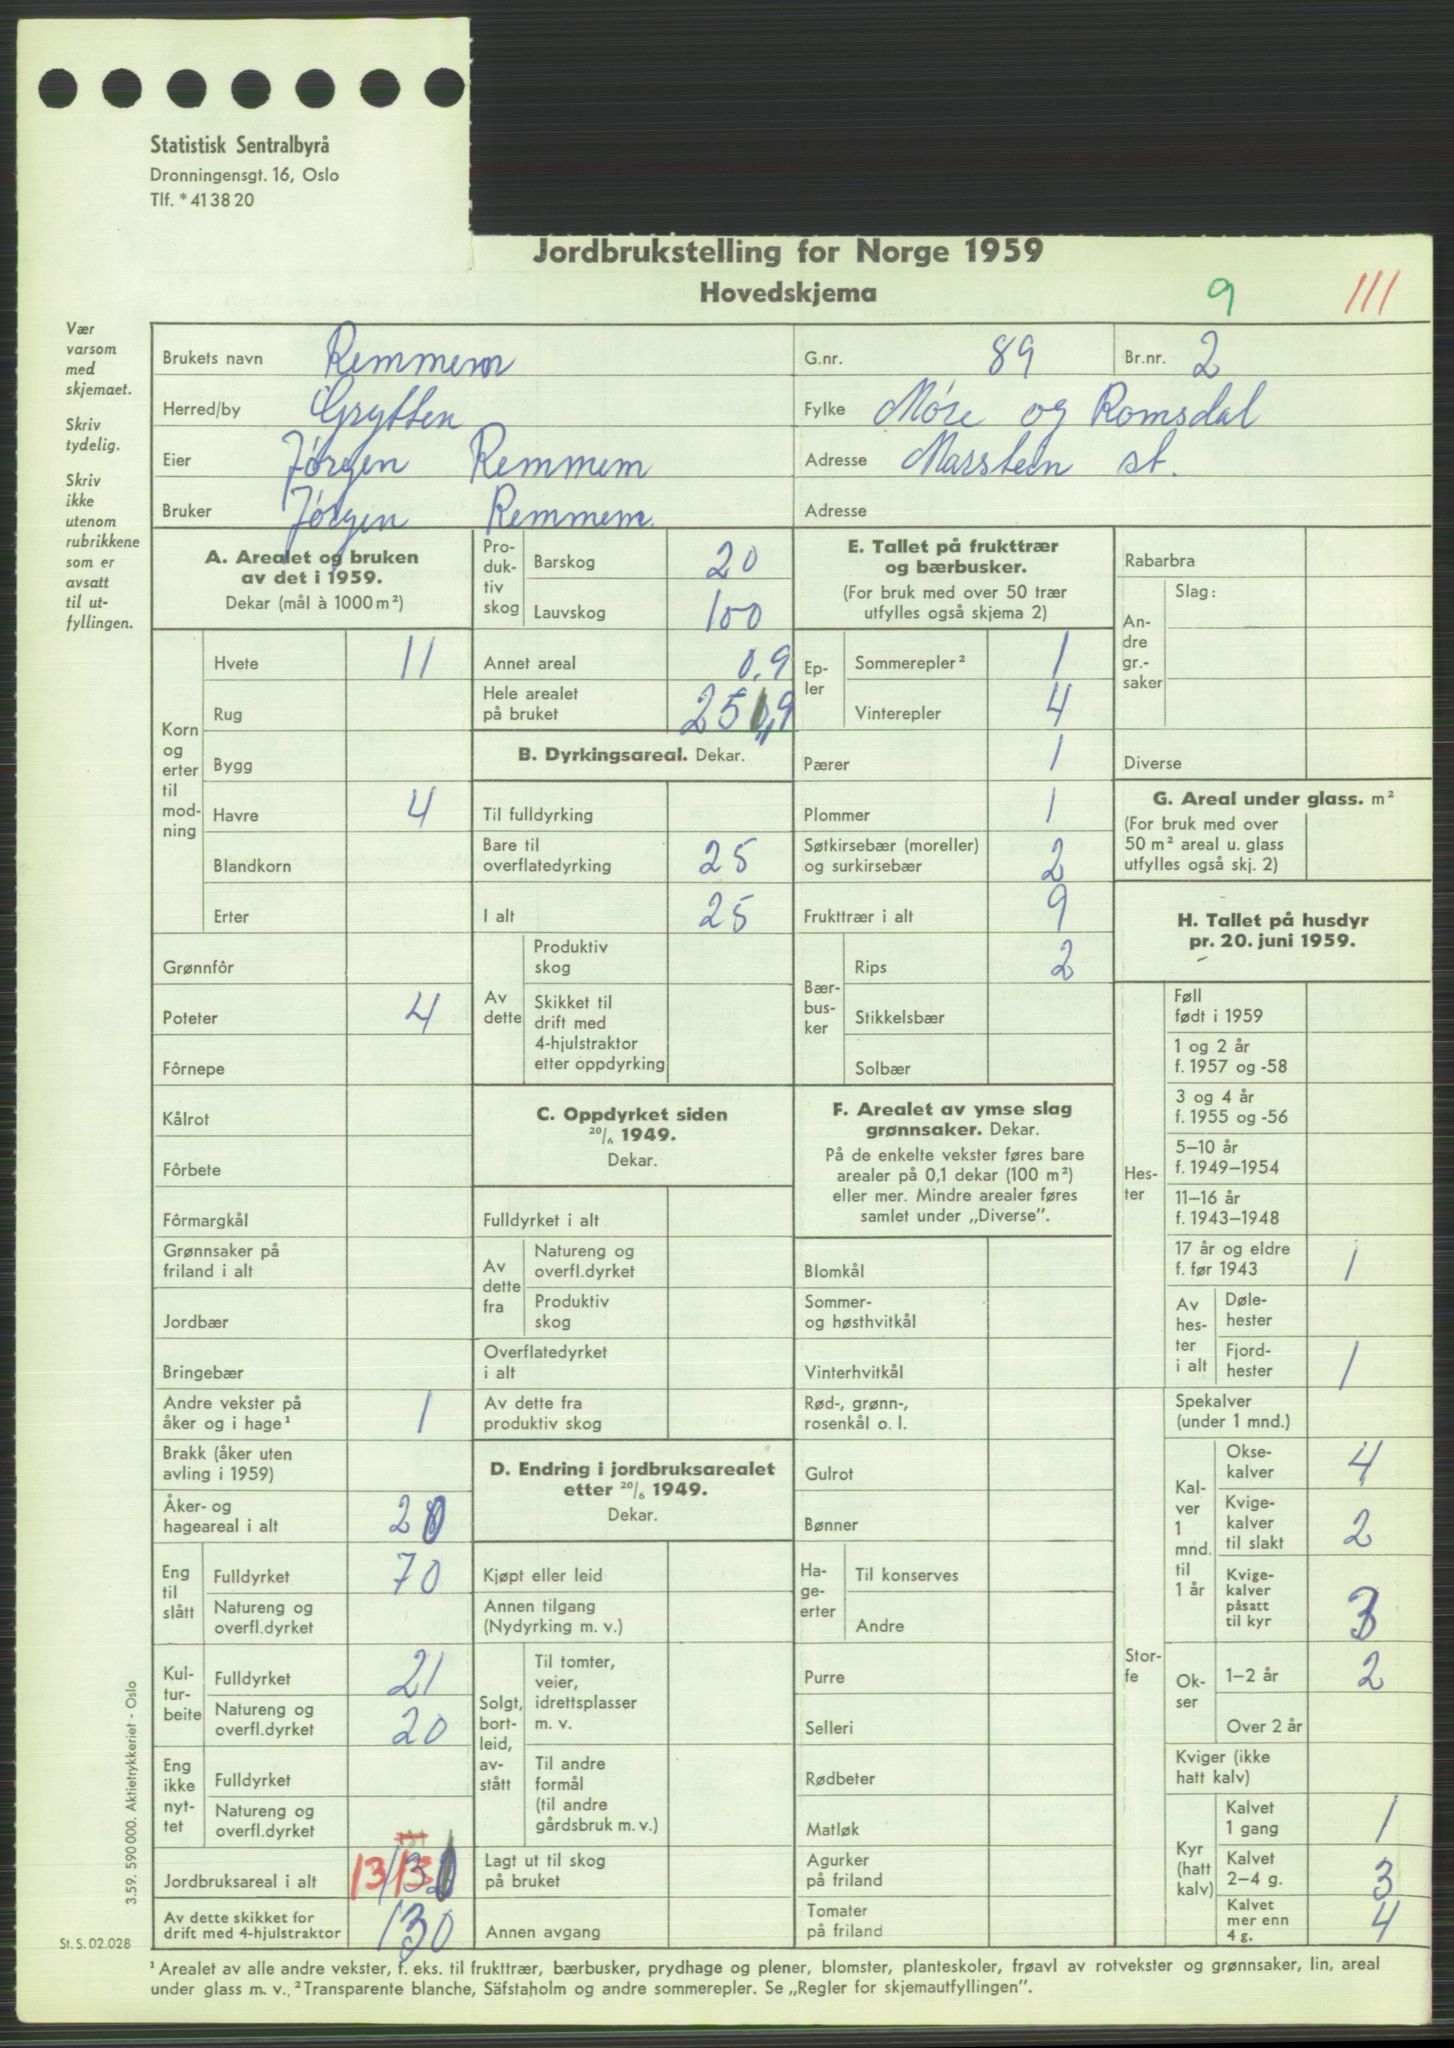 Statistisk Sentralbyrå
Dronningensgt. 16, Oslo
Tlf. * 41 38 20
Jordbrukstelling for Norge 1959
Hovedskjema
9
111
Vær
varsom
med
skjemaet.
Skriv
tydelig.
Skriv
ikke
utenom
rubrikkene
som er
avsatt
til ut-
fyllingen.
Brukets navn Remmem G.nr. 89 Br.nr. 2
Herred/by Grytten Fylke Møre og Romsdal
Eier Jørgen Remmem Adresse Marstein st.
Bruker Jørgen Remmem Adresse
A. Arealet og bruken
av det i 1959.
Dekar (mål à 1000 m²)
Korn
og
erter
til
mod-
ning
Hvete 11
Rug
Bygg
Havre 4
Blandkorn
Erter
Grønnfôr
Poteter 4
Fôrnepe
Kålrot
Fôrbete
Fôrmargkål
Grønnsaker på
friland i alt
Jordbær
Bringebær
Andre vekster på
åker og i hage¹ 1
Brakk (åker uten
avling i 1959)
Åker- og
hageareal i alt 20
Eng
til
slått
Fulldyrket 70
Natureng og
overfl.dyrket
Kul-
tur-
beite
Fulldyrket 21
Natureng og
overfl.dyrket 20
Eng
ikke
nyt-
tet
Fulldyrket
Natureng og
overfl.dyrket
Jordbruksareal i alt
Av dette skikket for
drift med 4-hjulstraktor 130
Pro-
duk-
tiv
skog
Barskog 20
Lauvskog 100
Annet areal 0,9
Hele arealet
på bruket
B. Dyrkingsareal. Dekar.
Til fulldyrking
Bare til
overflatedyrking 25
I alt 25
Av
dette
Produktiv
skog
Skikket til
drift med
4-hjulstraktor
etter oppdyrking
C. Oppdyrket siden
20/6 1949.
Dekar.
Fulldyrket i alt
Av
dette
fra
Natureng og
overfl.dyrket
Produktiv
skog
Overflatedyrket
i alt
Av dette fra
produktiv skog
D. Endring i jordbruksarealet
etter 20/6 1949.
Dekar.
Kjøpt eller leid
Annen tilgang
(Nydyrking m. v.)
Solgt,
bort-
leid,
av-
stått
Til tomter,
veier,
idrettsplasser
m. v.
Til andre
formål
(til andre
gårdsbruk m. v.)
Lagt ut til skog
på bruket
Annen avgang
E. Tallet på frukttrær
og bærbusker.
(For bruk med over 50 trær
utfylles også skjema 2)
Ep-
ler
Sommerepler² 1
Vinterepler 4
Pærer 1
Plommer 1
Søtkirsebær (moreller)
og surkirsebær 2
Frukttrær i alt 9
Bær-
bus-
ker
Rips 2
Stikkelsbær
Solbær
F. Arealet av ymse slag
grønnsaker. Dekar.
På de enkelte vekster føres bare
arealer på 0,1 dekar (100 m²)
eller mer. Mindre arealer føres
samlet under „Diverse”.
Blomkål
Sommer-
og høsthvitkål
Vinterhvitkål
Rød-, grønn-,
rosenkål o. l.
Gulrot
Bønner
Ha-
ge-
erter
Til konserves
Andre
Purre
Selleri
Rødbeter
Matløk
Agurker
på friland
Tomater
på friland
Rabarbra
An-
dre
gr.-
saker
Slag:
Diverse
G. Areal under glass. m²
(For bruk med over
50 m² areal u. glass
utfylles også skj. 2)
H. Tallet på husdyr
pr. 20. juni 1959.
Hes-
ter
Føll
født i 1959
1 og 2 år
f. 1957 og -58
3 og 4 år
f. 1955 og -56
5–10 år
f. 1949–1954
11–16 år
f. 1943–1948
17 år og eldre
f. før 1943 1
Av
hes-
ter
i alt
Døle-
hester
Fjord-
hester 1
Stor-
fe
Spekalver
(under 1 mnd.)
Kal-
ver
1
mnd.
til
1 år
Okse-
kalver 4
Kvige-
kalver
til slakt 2
Kvige-
kalver
påsatt
til kyr 3
Ok-
ser
1–2 år 2
Over 2 år
Kviger (ikke
hatt kalv)
Kyr
(hatt
kalv)
Kalvet
1 gang 1
Kalvet
2–4 g. 3
Kalvet
mer enn
4 g. 4
3.59. 590 000. Aktietrykkeriet - Oslo
St. S. 02.028
¹ Arealet av alle andre vekster, f. eks. til frukttrær, bærbusker, prydhage og plener, blomster, planteskoler, frøavl av rotvekster og grønnsaker, lin, areal
under glass m. v. ² Transparente blanche, Säfstaholm og andre sommerepler. Se „Regler for skjemautfyllingen”.